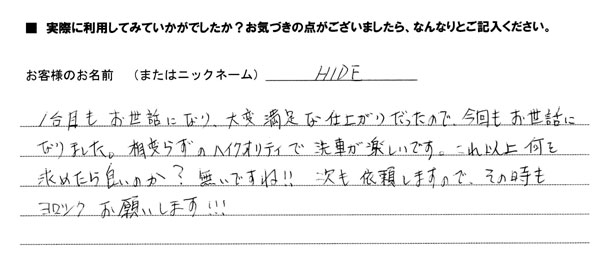 ■ 実際に利用してみていかがでしたか？お気づきの点がございましたら、なんなりとご記入ください。
お客様のお名前 （またはニックネーム） HIDE
1台目もお世話になり、大変満足な仕上がりだったので、今回もお世話に
なりました。相変らずのハイクオリティで洗車が楽しいです。これ以上何を
求めたら良いのか？無いですね!! 次も依頼しますので、その時も
ヨロシクお願いします!!!